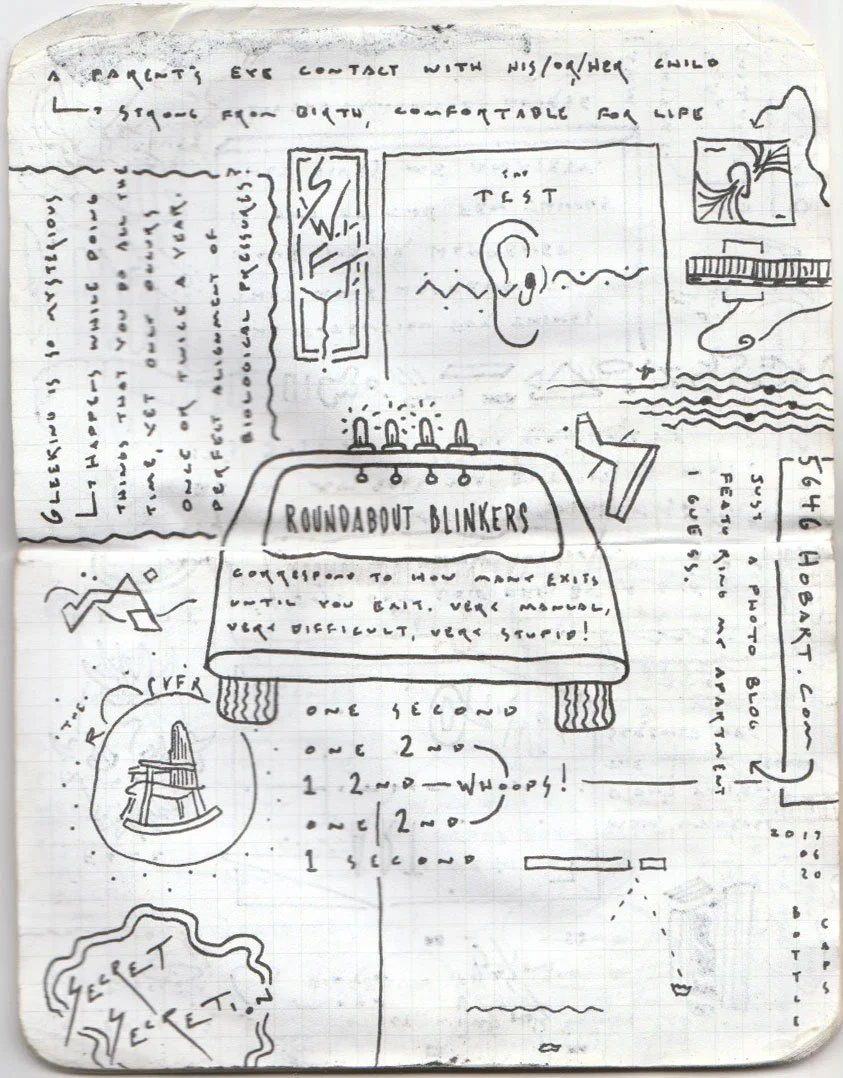 A PARENT'S EYE CONTACT WITH HIS/OR/HER CHILD
STRONG FROM BIRTH, COMFORTABLE FOR LIFE
GLEEKING IS SO MYSTERIOUS
HAPPENS WHILE DOING
THINGS THAT YOU DO ALL THE
TIME, YET ONLY OCCURS
ONCE OR TWICE A YEAR.
PERFECT ALIGNMENT OF
BIOLOGICAL PRESSURES?
THE
TEST
5646 HOBART.COM
JUST A PHOTO BLOG
FEATURING MY APARTMENT
I GUESS.
ROUNDABOUT BLINKERS
CORRESPOND TO HOW MANY EXITS
UNTIL YOU EXIT. VERY MANUAL,
VERY DIFFICULT, VERY STUPID!
THE
ONE SECOND
ONE 2ND
1 2ND — WHOOPS!
ONE 2ND
1 SECOND
2017
06
20
BOTTLE
CAPS
SECRET
SECRET